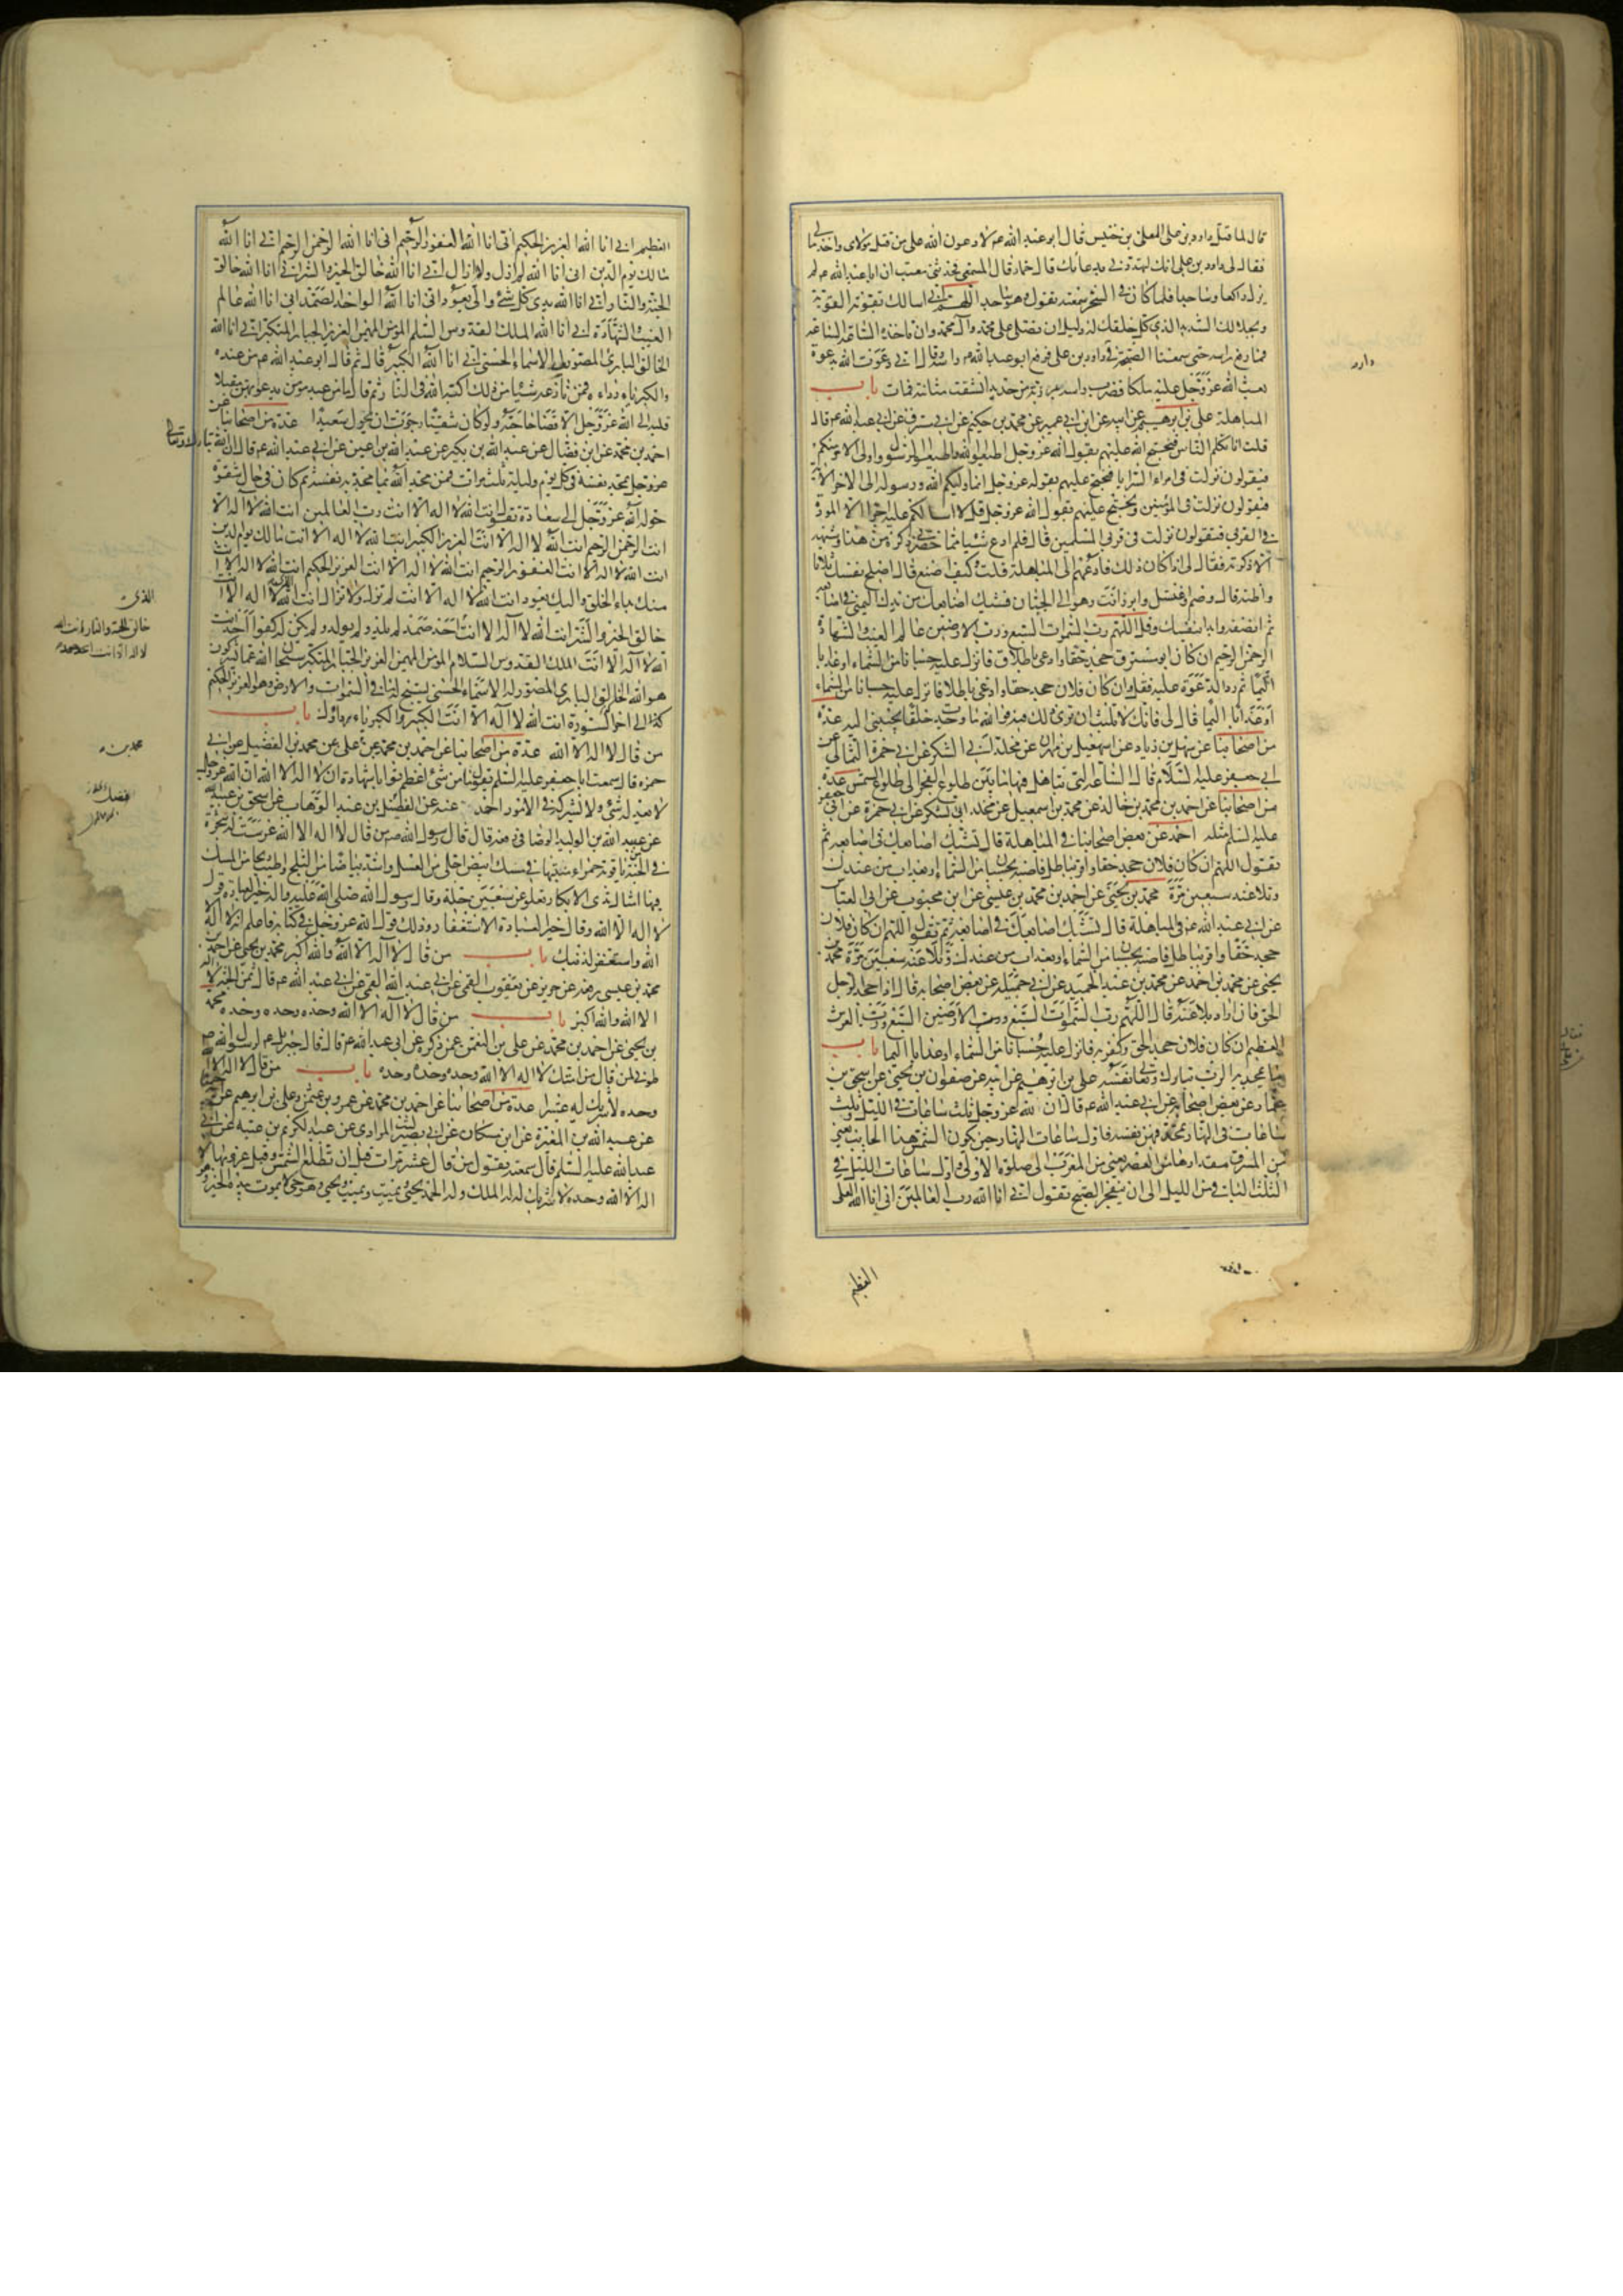 قال لما قتل داود بن على المعلى بن خنيس قال ابو عبد الله عم لادعون الله على من قتل مولاى واخذ مالى
فقال له داود بن على انك لتهددنى بدعائك قال حماد قال المسمعى فحدثنى معتب ان ابا عبد الله عم لم
يزل راكعا وساجدا فلما كان فى السحر سمعته يقول وهو ساجد اللهم انى اسالك بقوتك القوية
وبجلالك الشديد الذى كل خلقك له ذليل ان تصلى على محمد وآل محمد وان تاخذه الساعة الساعة
فما رفع راسه حتى سمعنا الصيحة فى دار داود بن على فرفع ابو عبد الله عم راسه وقال انى دعوت الله بدعوة
بعث الله عز وجل عليه ملكا فضرب راسه بمرزبة من حديد انشقت مثانته فمات باب
المباهلة على بن ابرهيم عن ابيه عن ابن ابى عمير عن محمد بن حكيم عن ابى مسروق عن ابى عبد الله عم قال
قلت انا نكلم الناس فنحتج عليهم بقول الله عز وجل اطيعوا الله واطيعوا الرسول واولى الامر منكم
فيقولون نزلت فى امراء السرايا فنحتج عليهم بقوله عز وجل انما وليكم الله ورسوله الى اخر الآية
فيقولون نزلت فى المؤمنين ونحتج عليهم بقول الله عز وجل قل لا اسالكم عليه اجرا الا المودة
فى القربى فيقولون نزلت فى قربى المسلمين قال فلم ادع شيئا مما حضرنى ذكره من هذا وشبهه
الا ذكرته فقال لى اذا كان ذلك فادعهم الى المباهلة قلت وكيف اصنع قال اصلح نفسك ثلاثا
واظنه قال وصم واغتسل وابرز انت وهو الى الجبان فشبك اصابعك من يدك اليمنى فى اصابعه
ثم انصفه وابدا بنفسك وقل اللهم رب السموات السبع ورب الارضين عالم الغيب والشهادة
الرحمن الرحيم ان كان ابو مسروق جحد حقا وادعى باطلا فانزل عليه حسبانا من السماء او عذابا
اليما ثم رد الدعوة عليه فقل وان كان فلان جحد حقا وادعى باطلا فانزل عليه حسبانا من السماء
او عذابا اليما ثم قال لى فانك لا تلبث ان ترى ذلك فيه فوالله ما وجدت خلقا يجيبنى اليه عدة
من اصحابنا عن سهل بن زياد عن اسمعيل بن مهران عن مخلد ابى الشكر عن ابى حمزة الثمالى عن
ابى جعفر عليه السلام قال الساعة التى تباهل فيها ما بين طلوع الفجر الى طلوع الشمس عدة
من اصحابنا عن احمد بن محمد بن خالد عن محمد بن اسمعيل عن مخلد ابى الشكر عن ابى حمزة عن ابى جعفر
عليه السلم مثله احمد عن بعض اصحابنا فى المباهلة قال تشبك اصابعك فى اصابعه ثم
تقول اللهم ان كان فلان جحد حقا واقر بباطل فاصبه بحسبان من السماء او بعذاب من عندك
وتلاعنه سبعين مرة محمد بن يحيى عن احمد بن محمد بن عيسى عن ابن محبوب عن ابى العباس
عن ابى عبد الله عم فى المباهلة قال تشبك اصابعك فى اصابعه ثم تقول اللهم ان كان فلان
جحد حقا واقر بباطل فاصبه بحسبان من السماء او بعذاب من عندك وتلاعنه سبعين مرة محمد بن
يحيى عن محمد بن احمد عن محمد بن عبد الحميد عن ابى جميلة عن بعض اصحابه قال اذا جحد الرجل
الحق فان اراد يلاعنه قال اللهم رب السموات السبع ورب الارضين السبع ورب العرش
العظيم ان كان فلان جحد الحق وكفر به فانزل عليه حسبانا من السماء او عذابا اليما باب
ما يمجد به الرب تبارك وتعالى نفسه على بن ابرهيم عن ابيه عن صفوان بن يحيى عن اسحق بن
عمار عن بعض اصحابه عن ابى عبد الله عم قال ان لله عز وجل ثلث ساعات فى الليل وثلث
ساعات فى النهار يمجد فيهن نفسه فاول ساعات النهار حين تكون الشمس هذا الجانب يعنى
من المشرق مقدارها من العصر يعنى من المغرب الى صلوة الاولى واول ساعات الليل فى
الثلث الباقى من الليل الى ان ينفجر الصبح يقول انى انا الله رب العالمين انى انا الله العلى
العظيم
العظيم انى انا الله العزيز الحكيم انى انا الله الغفور الرحيم انى انا الله الرحمن الرحيم انى انا الله
مالك يوم الدين انى انا الله لم ازل ولا ازال انى انا الله خالق الخير والشر انى انا الله خالق
الجنة والنار انى انا الله بدى كل شئ والى يعود انى انا الله الواحد الصمد انى انا الله عالم
الغيب والشهادة انى انا الله الملك القدوس السلم المؤمن المهيمن العزيز الجبار المتكبر انى انا الله
الخالق البارئ المصور لى الاسماء الحسنى انى انا الله الكبير قال ثم قال ابو عبد الله عم من عنده
والكبرياء رداءه فمن نازعه شيئا من ذلك اكبه الله فى النار ثم قال ما من عبد مومن يدعو بهن مقبلا
قلبه الى الله عز وجل الا قضا حاجته ولو كان شقيا رجوت ان يحول سعيدا عدة من اصحابنا عن
احمد بن محمد عن ابن فضال عن عبد الله بن بكير عن عبد الله بن اعين عن ابى عبد الله عم قال ان الله تبارك وتعالى
عز وجل يمجد نفسه فى كل يوم وليلة ثلث مرات فمن مجد الله بما مجد به نفسه ثم كان فى حال شقوة
حوله الله عز وجل الى سعادة تقول انت الله لا اله الا انت رب العالمين انت الله لا اله الا
انت الرحمن الرحيم انت الله لا اله الا انت العزيز الكبير انت الله لا اله الا انت مالك يوم الدين
انت الله لا اله الا انت الغفور الرحيم انت الله لا اله الا انت العزيز الحكيم انت الله لا اله الا انت
منك بداء الخلق واليك يعود انت الله لا اله الا انت لم تزل ولا تزال انت الله لا اله الا انت
خالق الخير والشر انت الله لا اله الا انت احد صمد لم يلد ولم يولد ولم يكن له كفوا احد انت
الله لا اله الا انت الملك القدوس السلام المؤمن المهيمن العزيز الجبار المتكبر سبحان الله عما يشركون
هو الله الخالق البارى المصور له الاسماء الحسنى يسبح له ما فى السموات والارض وهو العزيز الحكيم
الى اخر السورة انت الله لا اله الا انت الكبير والكبرياء رداؤك باب
من قال لا اله الا الله عدة من اصحابنا عن احمد بن محمد عن على عن محمد بن الفضيل عن ابى
حمزه قال سمعت ابا جعفر عليه السلم يقول ما من شئ اعظم ثوابا من شهادة ان لا اله الا الله ان الله عز وجل
لا يعدله شئ ولا يشركه فى الامور احد عنه عن الفضيل بن عبد الوهاب عن اسحق بن عبيد الله
عن عبيد الله بن الوليد الوصافى رفعه قال قال رسول الله ص من قال لا اله الا الله غرست له شجرة
فى الجنة من ياقوتة حمراء منبتها فى مسك ابيض احلى من العسل واشد بياضا من الثلج واطيب ريحا من المسك
فيها امثال ثدى الابكار تعلو عن سبعين حلة وقال رسول الله صلى الله عليه واله خير العبادة قول
لا اله الا الله وقال خير العبادة الاستغفار وذلك قول الله عز وجل فى كتابه فاعلم انه لا اله الا
الله واستغفر لذنبك باب من قال لا اله الا الله والله اكبر محمد بن يحيى عن احمد بن
محمد بن عيسى رفعه عن حريز عن يعقوب القمى عن ابى عبد الله عم قال ثمن الجنة لا اله
الا الله والله اكبر باب من قال لا اله الا الله وحده وحده وحده محمد
بن يحيى عن احمد بن محمد عن على بن النعمن عمن ذكره عن ابى عبد الله عم قال قال جبرئيل عم لرسول الله ص
طوبى لمن قال من امتك لا اله الا الله وحده وحده وحده باب من قال لا اله الا الله
وحده لا شريك له عشرا عدة من اصحابنا عن احمد بن محمد عن عمرو بن عثمن وعلى بن ابرهيم عن ابيه جميعا
عن عبد الله بن المغيرة عن ابن مسكان عن ابى بصير ليث المرادى عن عبد الكريم بن عتبة عن ابى
عبد الله عليه السلم قال سمعته يقول من قال عشر مرات قبل ان تطلع الشمس وقبل غروبها لا
اله الا الله وحده لا شريك له له الملك وله الحمد يحيى ويميت ويميت ويحيى وهو حى لا يموت بيده الخير وهو
الذى
خالق الجنة والنار انت الله
لا اله الا انت
محمد بن